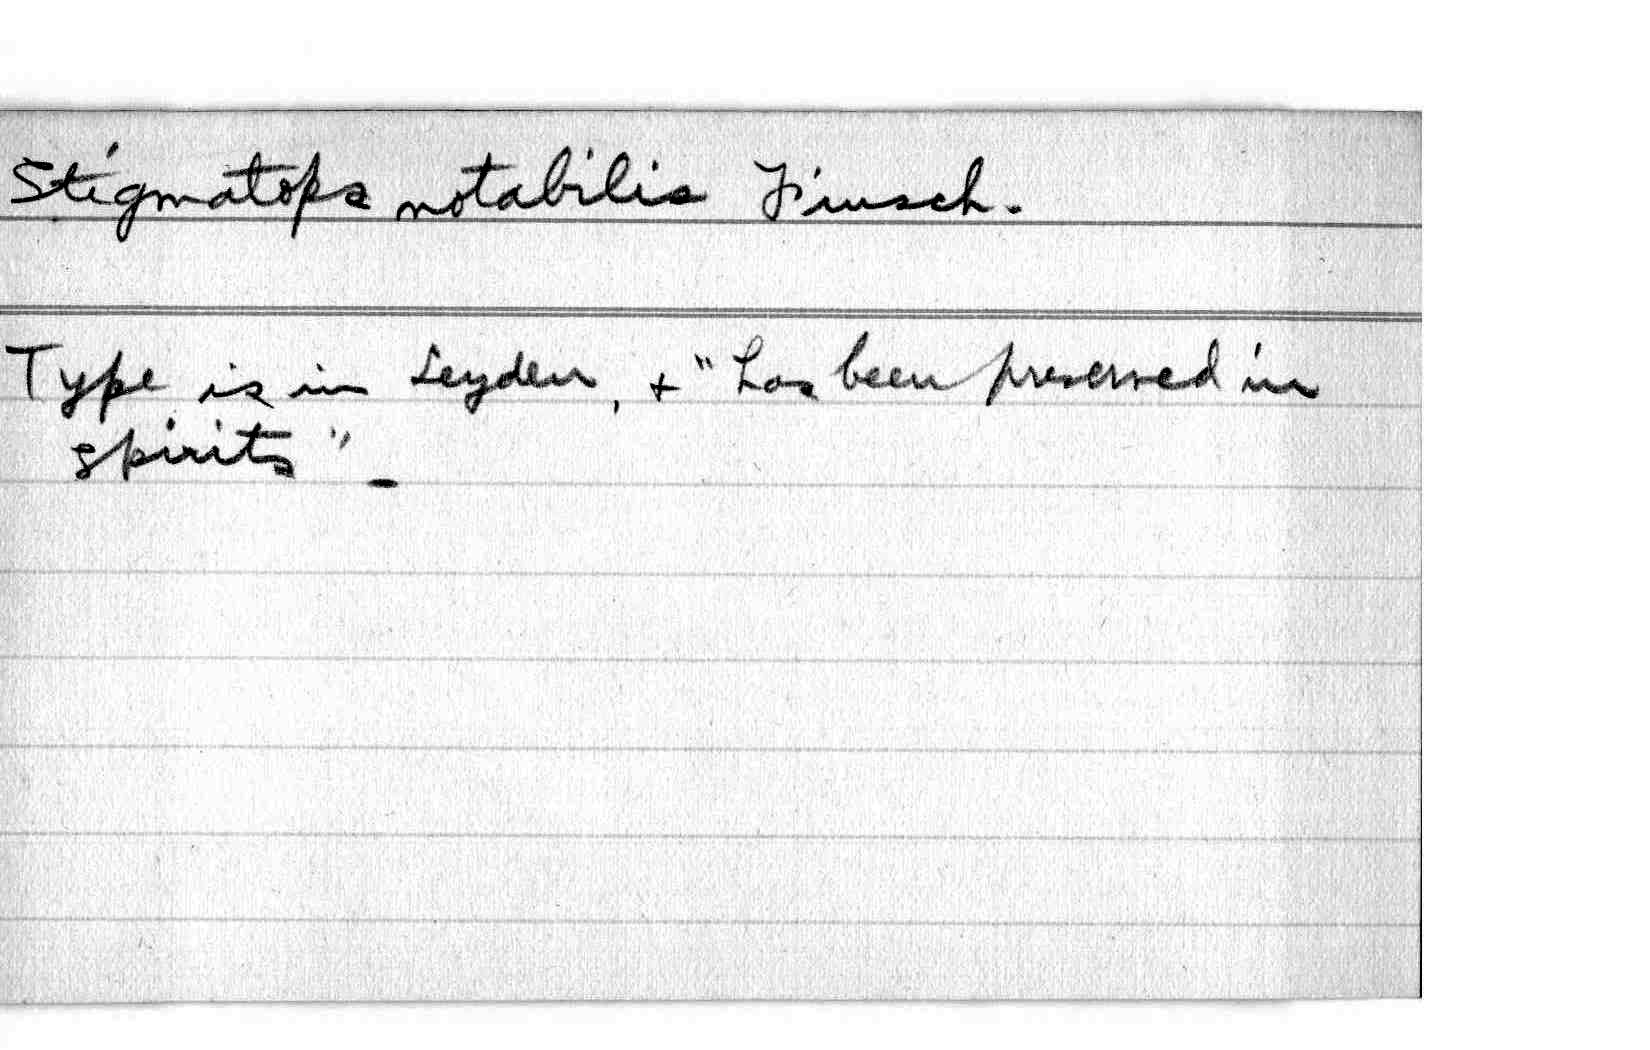 Stigmatops notabilis Finsch.
Type is in Leyden, + "has been preserved in
spirits" -